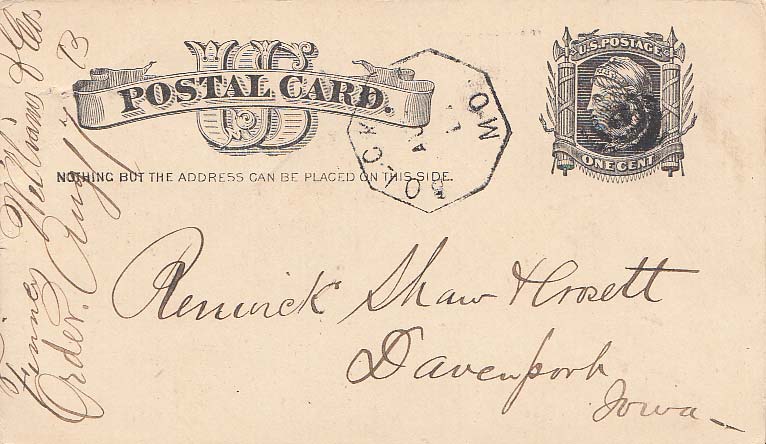 US
POSTAL CARD.
NOTHING BUT THE ADDRESS CAN BE PLACED ON THIS SIDE.
U.S. POSTAGE
ONE CENT
MO.
AU
Renwick Shaw & Crosett
Davenport
Iowa
Finney Williams & Co.
Order. Aug